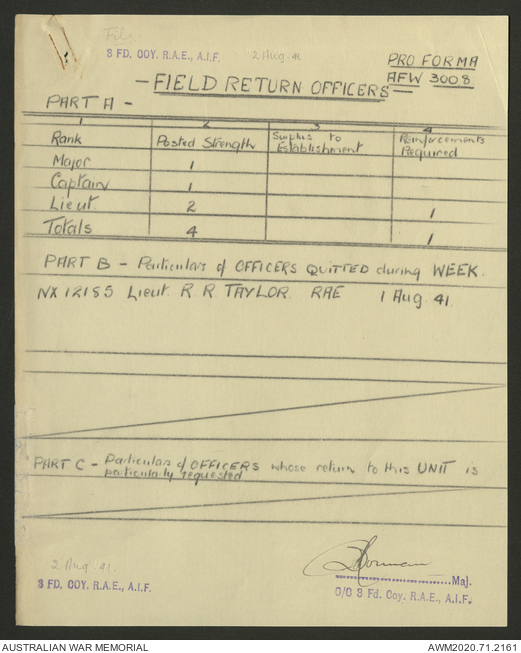 File
8 FD. COY. R.A.E., A.I.F. 2 Aug. 41
PRO FORMA
AFW 3008
- FIELD RETURN OFFICERS -
PART A -
1 2 3 4
Rank Posted Strength Surplus to Establishment Reinforcements Required
Major 1
Captain 1
Lieut 2 1
Totals 4 1
PART B - Particulars of OFFICERS QUITTED during WEEK.
NX12185 Lieut. R.R. TAYLOR RAE 1 Aug. 41.
PART C - Particulars of OFFICERS whose return to this UNIT is
particularly requested
2 Aug. 41.
8 FD. COY. R.A.E., A.I.F.
Maj.
O/C 8 Fd. Coy. R.A.E., A.I.F.
AUSTRALIAN WAR MEMORIAL AWM2020.71.2161